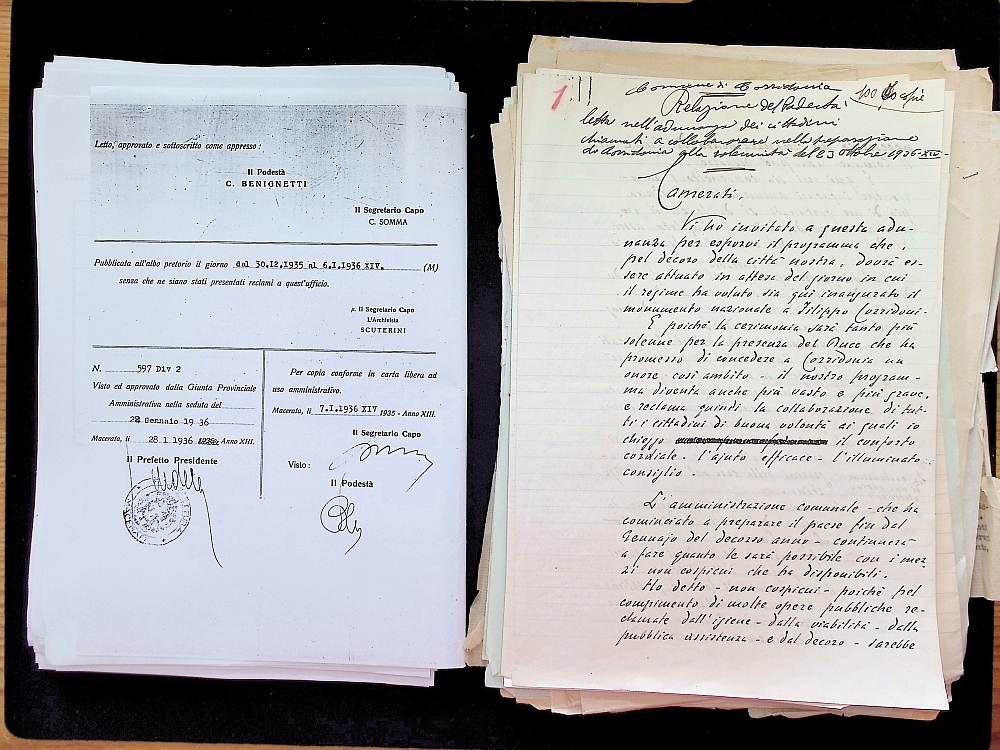 Letto, approvato e sottoscritto come appresso :
Il Podestà
C. BENIGNETTI
Il Segretario Capo
C. SOMMA
Pubblicata all'albo pretorio il giorno dal 30.12.1935 al 6.I.1936 XIV. (M)
senza che ne siano stati presentati reclami a quest'ufficio.
p. Il Segretario Capo
L'Archivista
SCUTERINI
N. 597 Div 2
Visto ed approvato dalla Giunta Provinciale
Amministrativa nella seduta del
22 Gennaio 19 36
Macerata, li 28.1 1936 Anno XIII.
Il Prefetto Presidente
Per copia conforme in carta libera ad
uso amministrativo.
Macerata, li 7.I.1936 XIV 1935 - Anno XIII.
Il Segretario Capo
Visto :
Il Podestà
1
100 Copie
Comune di Corridonia
Relazione del Podestà
letta nell'adunanza dei cittadini
chiamati a collaborare nella preparazione
di Corridonia alla solennità del 23 ottobre 1936-XIV-
Camerati,
Vi ho invitato a questa adu-
nanza per esporvi il programma che,
pel decoro della città nostra, dovrà es-
sere attuato in attesa del giorno in cui
il regime ha voluto sia qui inaugurato il
monumento nazionale a Filippo Corridoni-
E poichè la cerimonia sarà tanto più
solenne per la presenza del Duce che ha
promesso di concedere a Corridonia un
onore così ambito - il nostro program-
ma diventa anche più vasto e più grave,
e reclama quindi la collaborazione di tut-
ti i cittadini di buona volontà ai quali io
chieggo il conforto
cordiale - l'ajuto efficace - l'illuminato
consiglio.
L'amministrazione comunale - che ha
cominciato a preparare il paese fin dal
Gennajo del decorso anno - continuerà
a fare quanto le sarà possibile con i mez
zi non cospicui che ha disponibili.
Ho detto - non cospicui - poichè pel
compimento di molte opere pubbliche re-
clamate dall'igiene - dalla viabilità - dalla
pubblica assistenza - e dal decoro - sarebbe